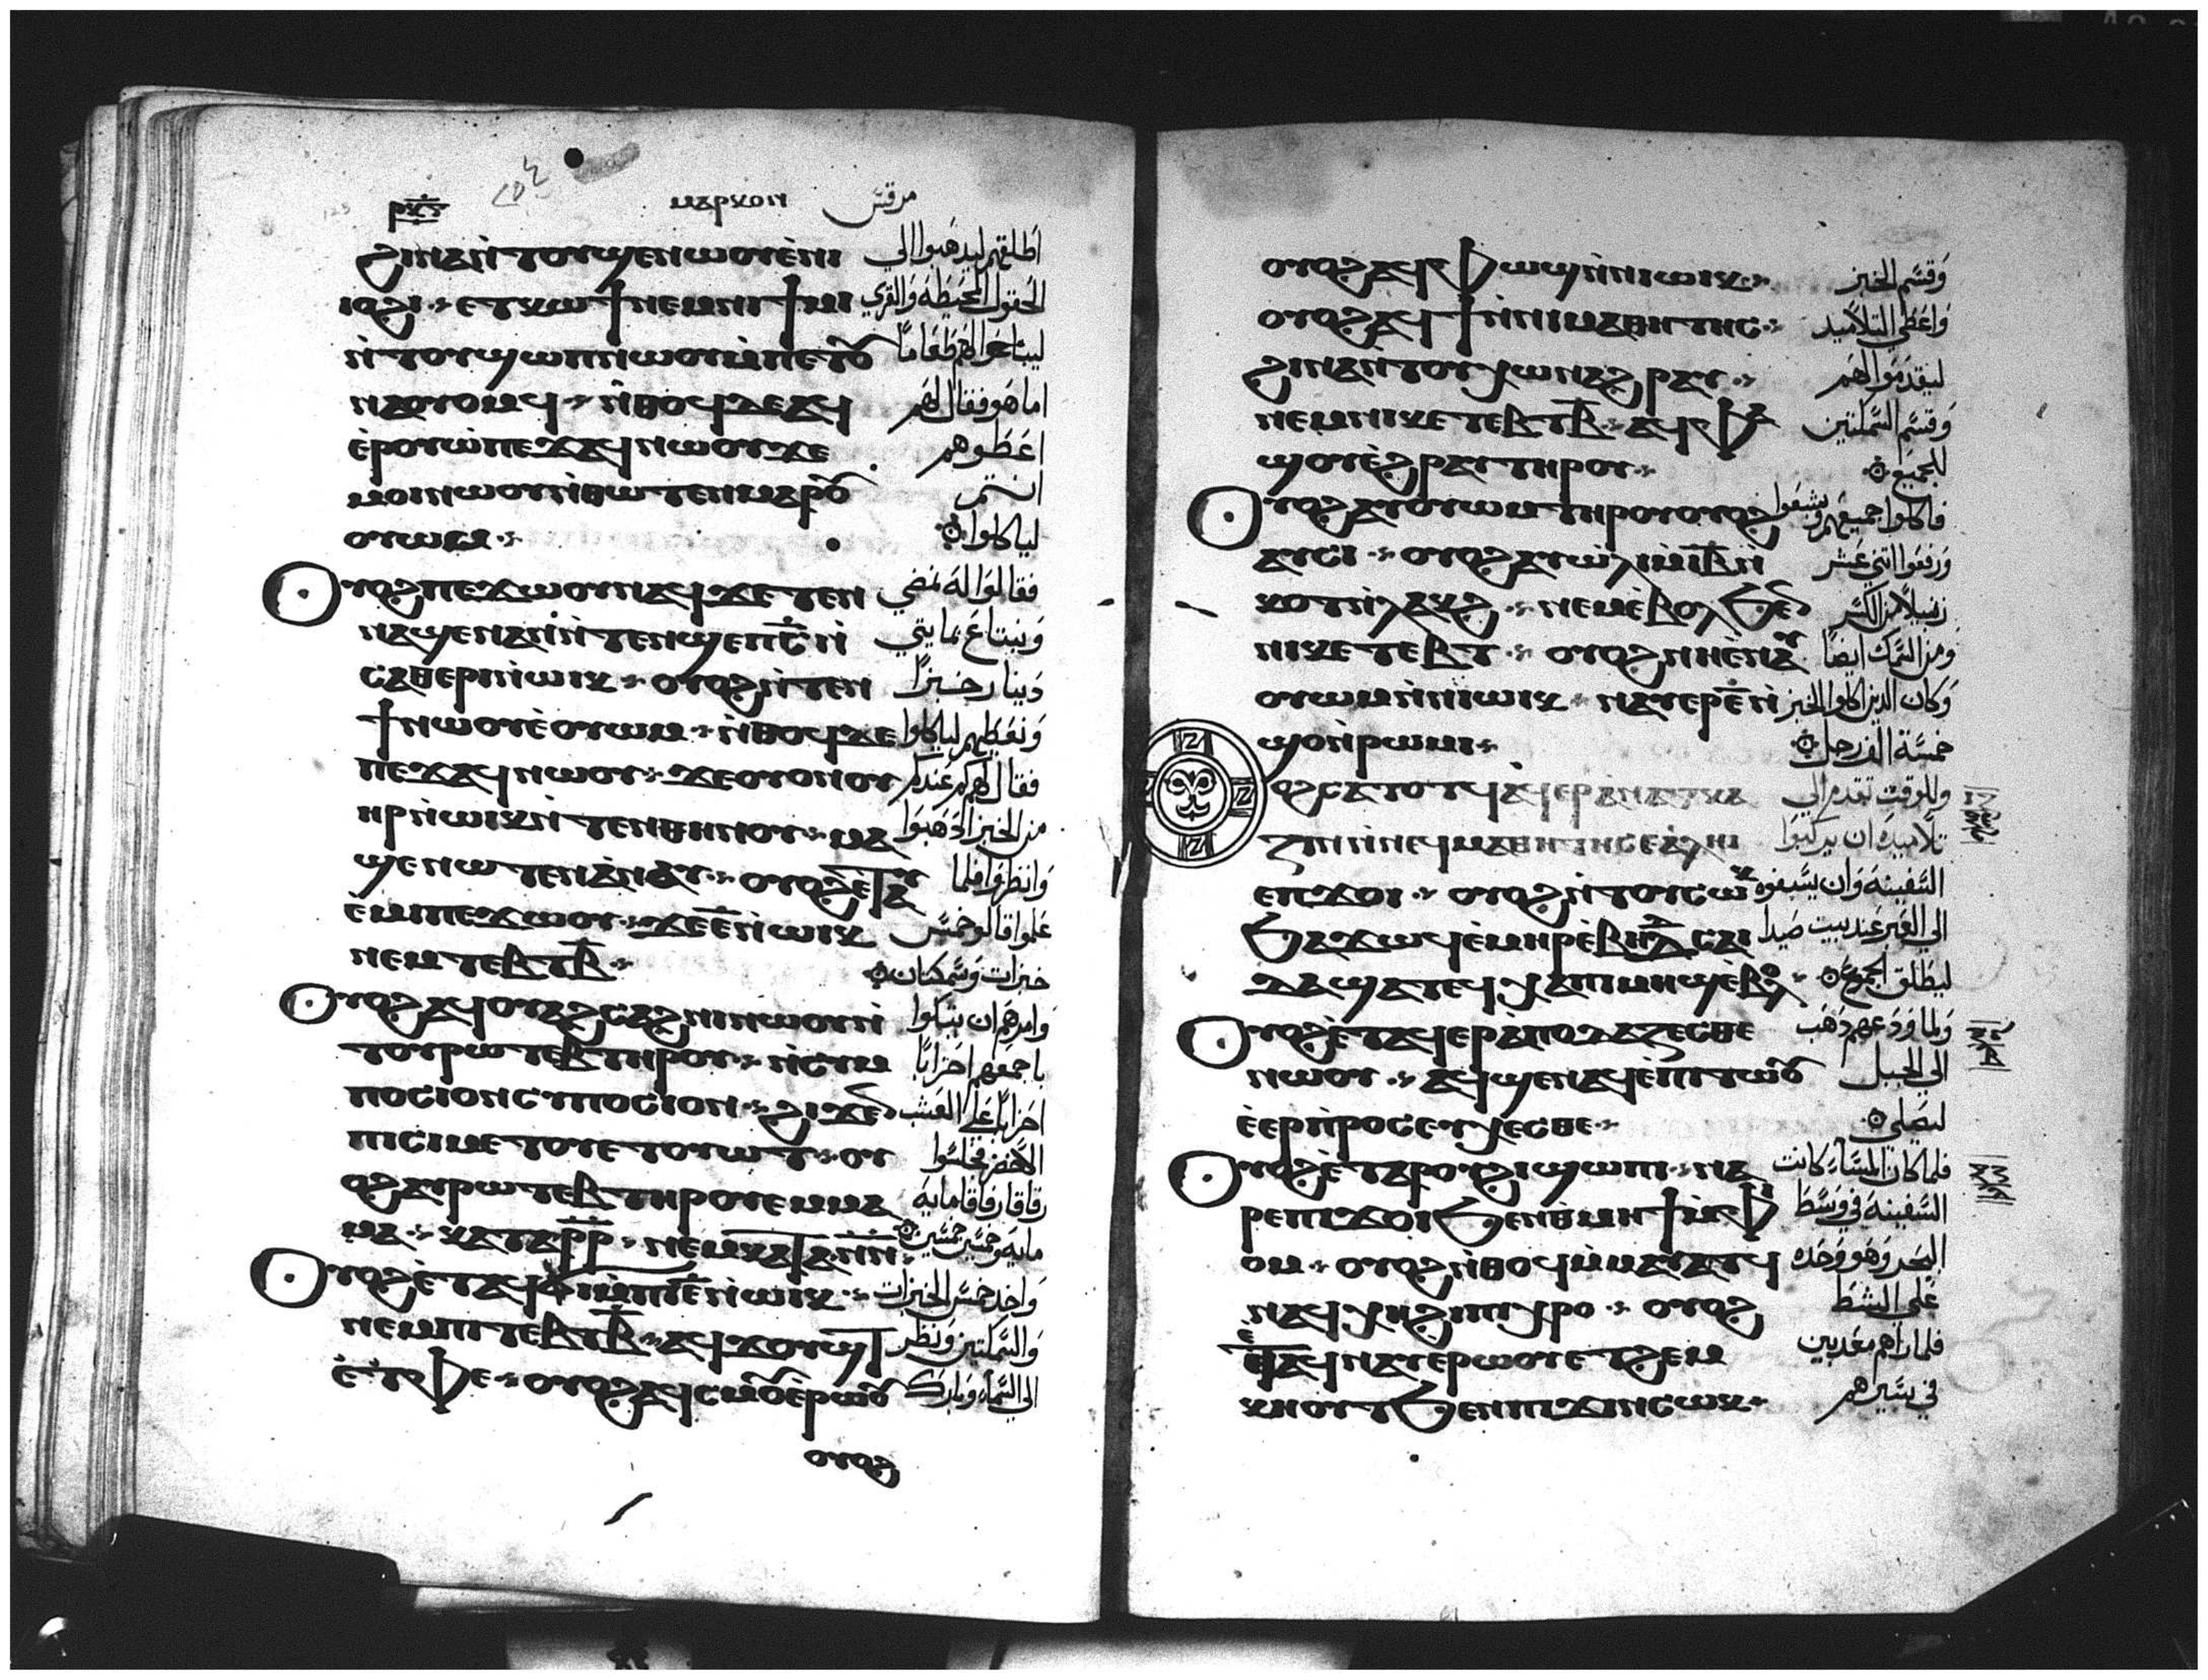 ⲙⲁⲣⲕⲟⲛ مرقس
ϩⲓⲛⲁⲛ̀ⲧⲟⲩϣⲉⲛⲱⲟⲩⲉ̀ⲛⲓ اطلقهم ليذهبوا الي
ⲓⲟϩⲓ ⲉⲧⲕⲱϯⲛⲉⲙⲛⲓϯⲙⲓ الحقول المحيطه والقري
ⲛ̀ⲧⲟⲩϣⲱⲡⲛⲱⲟⲩⲙ̀ⲡⲉⲧⲟⲩ ليبتاعوا لهم طعاما
ⲛⲁⲟⲩⲟⲙϥ ⲛ̀ⲑⲟϥⲇⲉⲁϥ اما هو فقال لهم
ⲉ̀ⲣⲟⲩⲱ̀ⲡⲉϫⲁϥⲛⲱⲟⲩϫⲉ اعطوهم
ⲙⲟⲓⲛⲱⲟⲩⲛ̀ⲑⲱⲧⲉⲛⲙⲁⲣⲟⲩ انتم
ⲟⲩⲱⲙ لياكلوا
ⲟⲩⲟϩⲡⲉϫⲱⲟⲩⲛⲁϥϫⲉⲧⲉⲛ فقالوا له نمضي
ⲛⲁϣⲉⲛⲁⲛⲛ̀ⲧⲉⲛϣⲉⲡⲥ̅ⲛ̀ ونبتاع بمايتي
ⲥⲁⲑⲉⲣⲓⲛ̀ⲱⲓⲕ ⲟⲩⲟϩⲛ̀ⲧⲉⲛ دينار خبزا
ϯⲛⲱⲟⲩⲉ̀ⲟⲩⲱⲙ ⲛ̀ⲑⲟϥⲇⲉ ونعطيهم لياكلوا
ⲡⲉϫⲁϥⲛⲱⲟⲩ ϫⲉⲟⲩⲟⲛⲟⲩ فقال لهم كم عندكم
ⲏⲣⲛ̀ⲱⲓⲕⲛ̀ⲧⲉⲛⲑⲏⲛⲟⲩ ⲙⲁ من الخبز اذهبوا
ϣⲉⲛⲱⲧⲉⲛⲁ̀ⲛⲁⲩ ⲟⲩⲟϩⲉ̀ⲧⲁⲩ وانظروا فلما
ⲉ̀ⲙⲓⲡⲉϫⲱⲟⲩ ϫⲉⲉ̅ⲛ̀ⲱⲓⲕ علموا قالو خمس
ⲛⲉⲙⲧⲉⲃⲧⲃ̅ خبزات وسمكتان
ⲟⲩⲟϩⲁϥⲟⲩⲁϩⲥⲁϩⲛⲓⲛⲱⲟⲩⲛ̀ وامرهم ان يتكوا
ⲧⲟⲩⲣⲱⲧⲉⲃⲧⲏⲣⲟⲩ ⲛ̀ⲥⲩⲙ باجمعهم احزابا
ⲡⲟⲥⲓⲟⲛⲥⲩⲙⲡⲟⲥⲓⲟⲛ ϩⲓϫⲉⲛ احزابا علي العشب
ⲡⲓⲥⲓⲙⲉⲧⲟⲩⲉⲧⲟⲩⲱⲧ ⲟⲩ الاخضر فجلسوا
ⲟϩⲁⲩⲣⲱⲧⲉⲃⲧⲏⲣⲟⲩⲉⲙⲙⲁ رفاقا رفاقا مايه
ⲙⲁ ⲕⲁⲧⲁⲣ̅ⲣ̅ ⲛⲉⲙⲕⲁⲧⲁⲛ̅ⲛ̅ مايه وخمسين خمسين
ⲟⲩⲟϩⲉ̀ⲧⲁϥϭⲓⲙ̀ⲡⲓⲉ̅ⲛ̀ⲱⲓⲕ واخد خمس الخبزات
ⲛⲉⲙⲡⲓⲧⲉⲃⲧⲃ̅ ⲁϥϫⲟⲩϣⲧ والسمكتين ونظر
ⲉ̀ⲧ̀ⲫⲉ ⲟⲩⲟϩⲁϥⲥⲙⲟⲩⲉ̀ⲣⲱⲟⲩ الي السماء وبارك
ⲟⲩⲟϩ
ⲟⲩⲟϩⲁϥⲫⲱϣⲛ̀ⲛⲓⲱⲓⲕ وقسم الخبز
ⲟⲩⲟϩⲁϥϯⲛ̀ⲛⲓⲙⲁⲑⲏⲧⲏⲥ واعطي التلاميد
ϩⲓⲛⲁⲛ̀ⲧⲟⲩⲭⲱⲛⲁϩⲣⲁⲩ ليقدموا لهم
ⲛⲉⲙⲡⲓⲕⲉⲧⲉⲃⲧⲃ̅ ⲁϥⲫⲁ وقسم السمكتين
ϣⲟⲩⲉ̀ϩⲣⲁⲩⲧⲏⲣⲟⲩ للجميع
ⲟⲩⲟϩⲁⲩⲟⲩⲱⲙⲧⲏⲣⲟⲩⲟⲩⲟϩ فاكلوا جميعهم وشبعوا
ⲁⲩⲥⲓ ⲟⲩⲟϩⲁⲩⲱ̀ⲗⲓⲙ̀ⲓⲃ̅ⲛ̀ ورفعوا اتني عشر
ⲕⲟⲧⲛ̀ⲗⲁⲕϩ ⲛⲉⲙⲉ̀ⲃⲟⲗϧⲉⲛ زنبيلا من الكسر
ⲛⲓⲕⲉⲧⲉⲃⲧ ⲟⲩⲟϩⲛⲏⲉ̀ⲛⲁⲩ ومن السمك ايضا
ⲟⲩⲱⲙⲛ̀ⲛⲓⲱⲓⲕ ⲛⲁⲩⲉⲣⲉ̅ⲛ̀ وكان الدين اكلوا الخبز
ϣⲟⲛ̀ⲣⲱⲙⲓ خمسة الف رجل
ⲟⲩⲟϩⲥⲁⲧⲟⲧϥⲁϥⲉⲣⲁ̀ⲛⲁⲅⲕⲁ وللوقت تقدم الي
ⲍⲓⲛⲛ̀ⲛⲉϥⲙⲁⲑⲏⲧⲏⲥⲉⲁ̀ⲗⲏⲓ تلاميذه ان يركبوا
ⲉⲡϫⲟⲓ ⲟⲩⲟϩⲛ̀ⲧⲟⲩⲥⲱⲕ السفينه وان يسبقوه
ϧⲁϫⲱϥⲉ̀ⲙⲏⲣⲉ̀ⲃⲏⲑⲥⲁⲓ الي العبر عند بيت صيدا
ⲇⲁϣⲁⲧⲉϥⲭⲁⲡⲓⲙⲏϣⲉ̀ⲃⲟⲗ ليطلق الجموع
ⲟⲩⲟϩⲉ̀ⲧⲁϥⲉⲣⲁ̀ⲡⲟⲇⲁⲍⲉⲥⲑⲉ ولما ودعهم ذهب
ⲛⲱⲟⲩ ⲁϥϣⲉⲛⲁϥⲉ̀ⲡⲓⲧⲱⲟⲩ الي الجبل
ⲉ̀ⲉⲣⲡ̀ⲣⲟⲥⲉⲩⲭⲉⲥⲑⲉ ليصلي
ⲟⲩⲟϩⲉ̀ⲧⲁⲣⲟⲩϩⲓϣⲱⲡⲓ ⲛⲁ فلما كان المساء كانت
ⲣⲉⲡⲓϫⲟⲓϧⲉⲛⲑⲙⲏϯⲙ̀ⲫⲓ السفينه في وسط
ⲟⲙ ⲟⲩⲟϩⲛ̀ⲑⲟϥⲙ̀ⲙⲁⲩⲁⲧϥ البحر وهو وحده
ⲛⲁϥⲭⲏϩⲓⲡⲓⲭⲣⲟ ⲟⲩⲟϩ علي الشط
ⲉ̀ⲧⲁϥⲛⲁⲩⲉⲣⲱⲟⲩⲉⲧϩⲉⲙ فلما راهم معدبين
ⲕⲏⲟⲩⲧϧⲉⲛⲡⲓϫⲓⲛⲥⲱⲕ في سيرهم